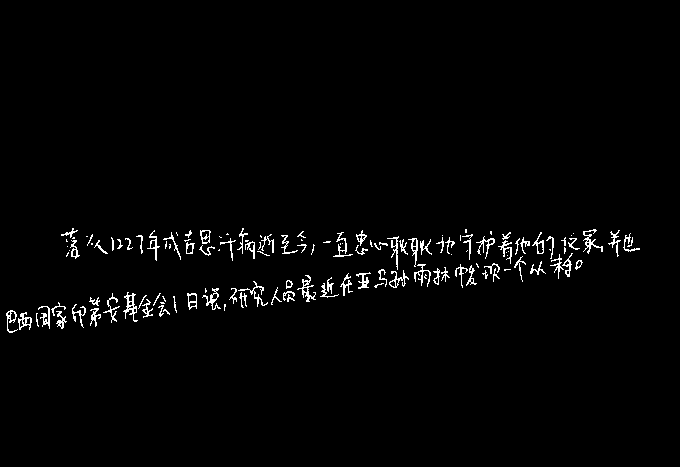 落从1227年成吉思汗病逝至今,一直忠心耿耿地守护着他的陵冢,并也
巴西国家印第安基金会1日说,研究人员最近在亚马孙雨林中发现一个从未和。